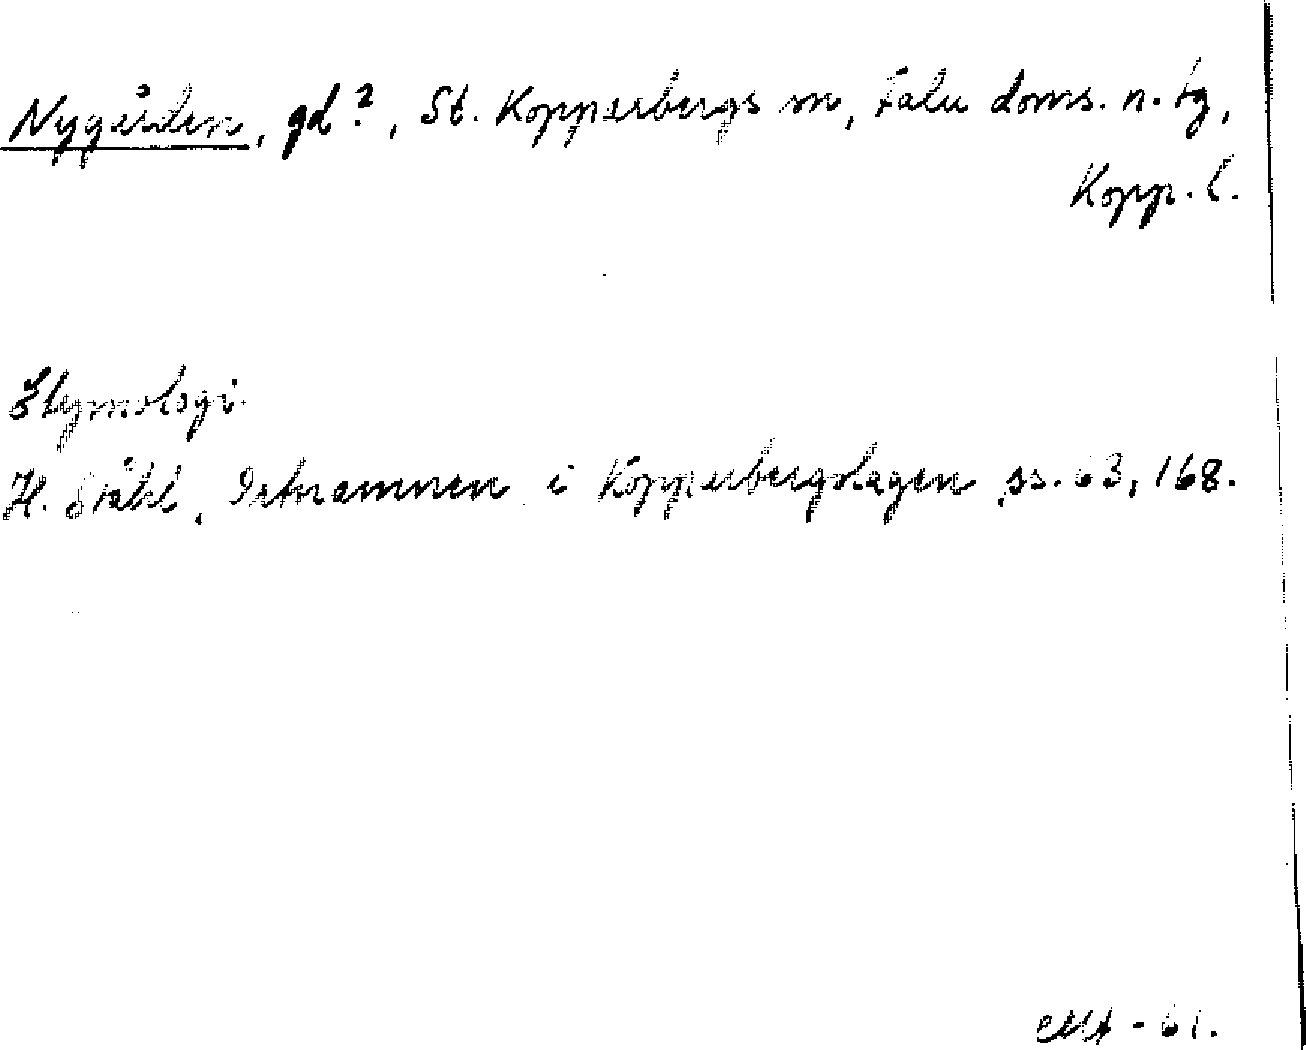 Nygården, gd?, St. Kopparbergs sn, Falu doms. n. tg,
Kopp. l.
Etymologi.
H. Ståhl, Ortnamnen i Kopparbergslagen ss. 63, 168.
EMA - 61.